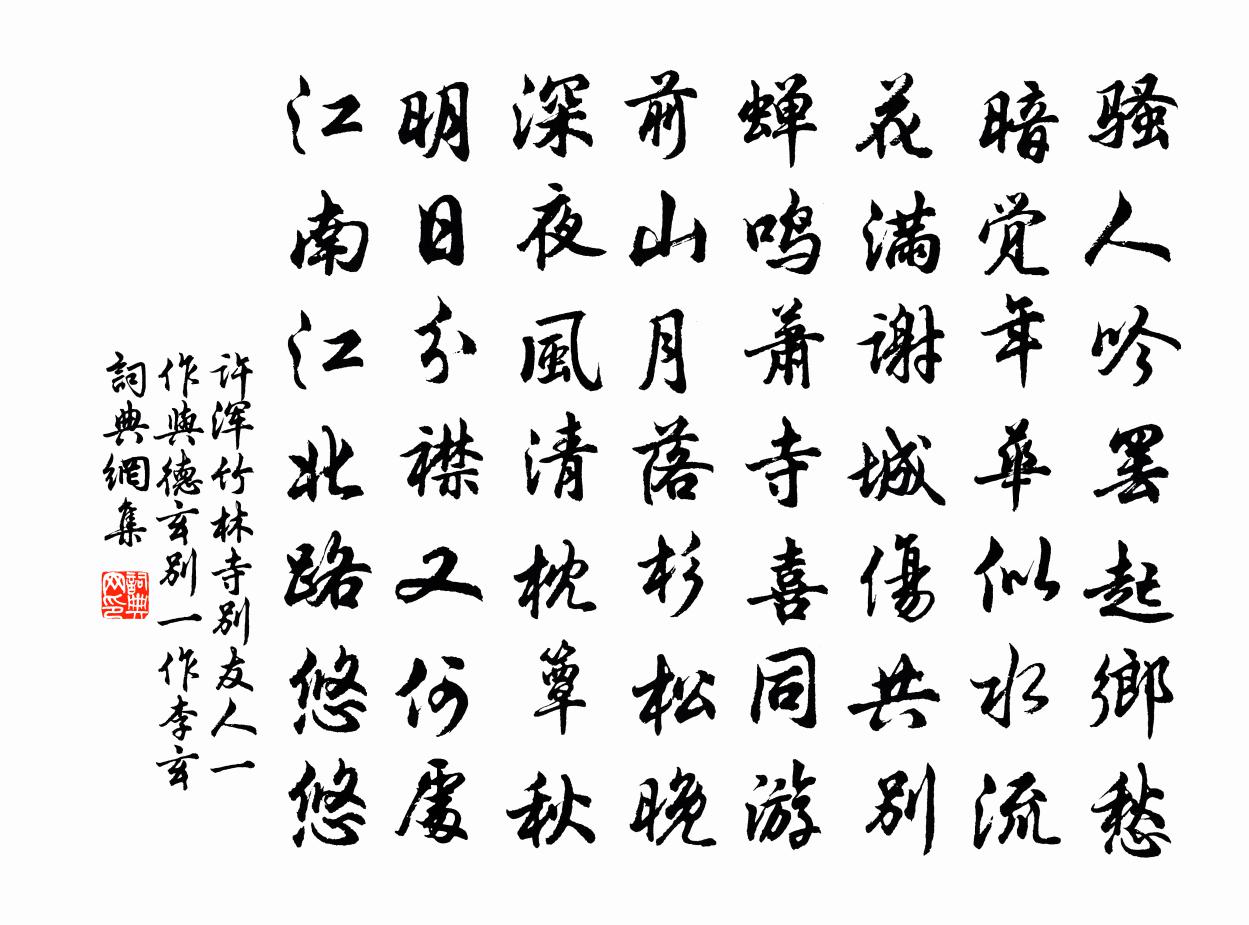 骚人吟罢起鄉愁
暗觉年華似水流
花满謝城傷共别
蝉鸣萧寺喜同游
前山月落杉松晚
深夜風清枕簟秋
明日分襟又何處
江南江北路悠悠
许浑竹林寺别友人一
作與德玄别一作李玄
詞典網集
詞典网印